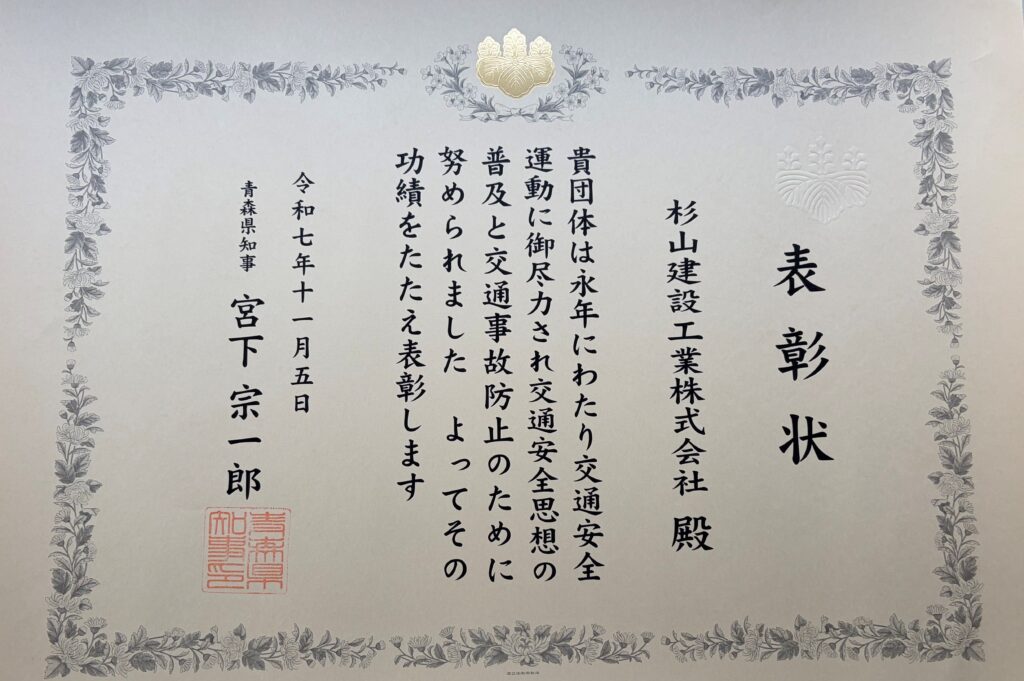 表彰状
杉山建設工業株式会社 殿
貴団体は永年にわたり交通安全
運動に御尽力され交通安全思想の
普及と交通事故防止のために
努められました よってその
功績をたたえ表彰します
令和七年十一月五日
青森県知事 宮下宗一郎
青森県
知事印